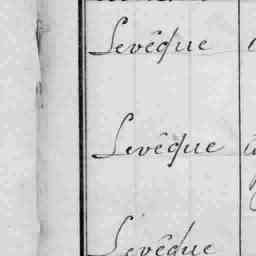 Levêque
Levêque
Levêque